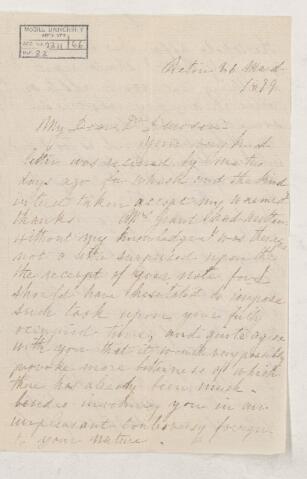 McGILL UNIVERSITY
ACC. NO. 2211/66
REF. 22
Pictou 26 March
1879
My Dear Dr Dawson
Your very kind
letter was received by me two
days ago for which and the kind
interest taken accept my warmest
thanks. Mr Grant had written
without my knowledge & was therefore
not a little surprised upon the
the receipt of your note for I
should have hesitated to impose
such task upon your fully
occupied time, and quite agree
with you that it would very possibly
provoke more bitterness of which
there has already been much
besides involving you in an
unpleasant controversy foreign
to your nature.